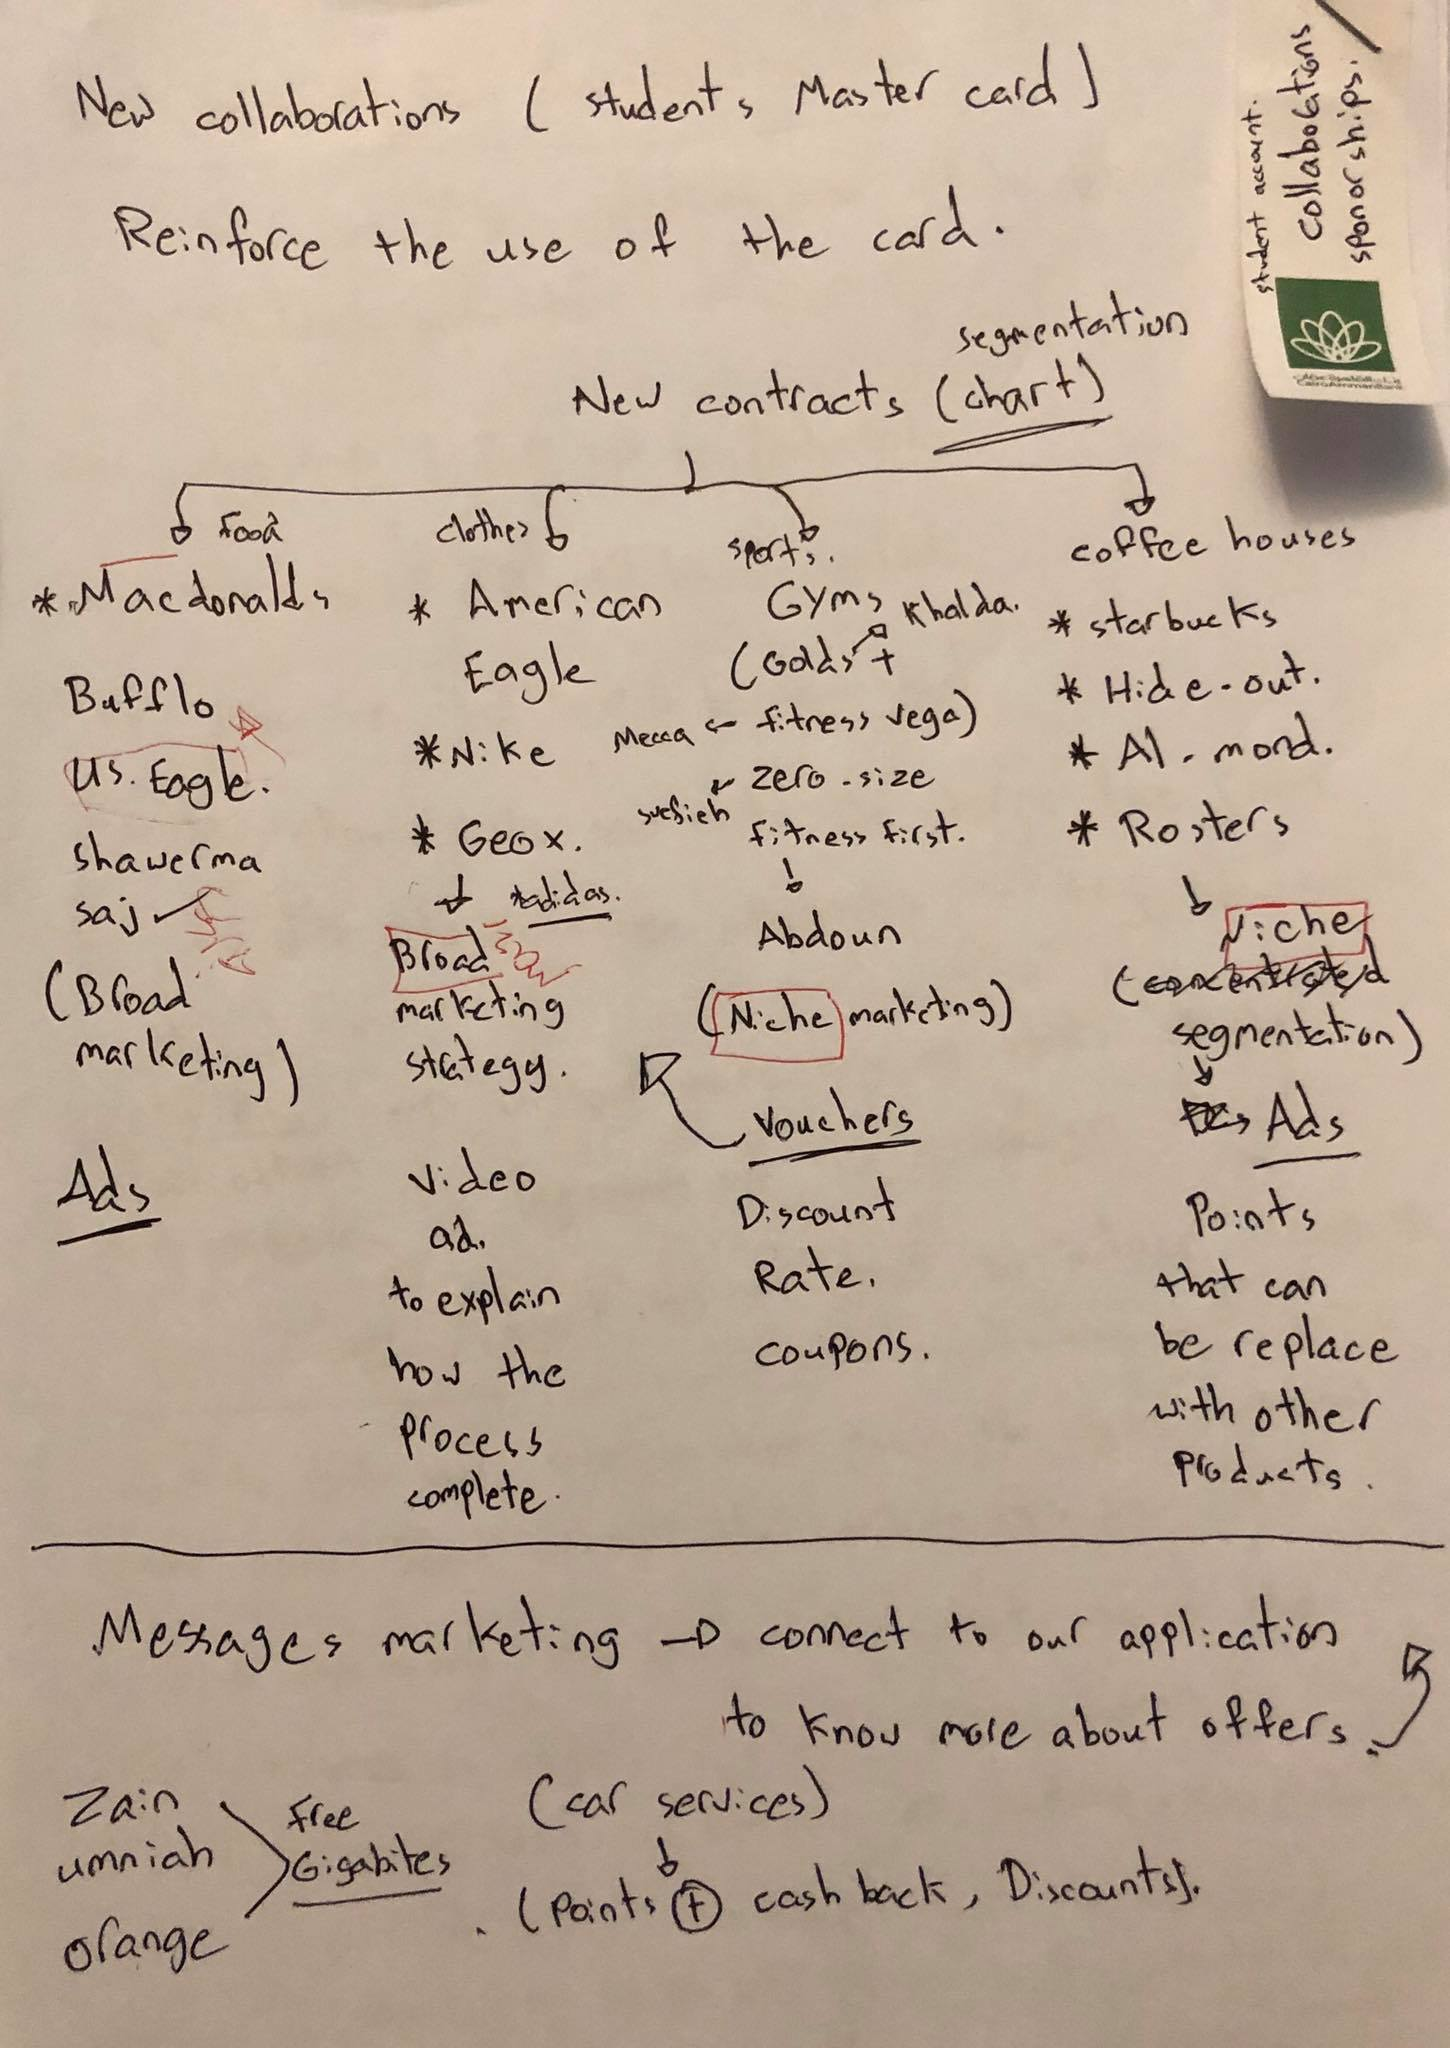 New collaborations (students Master card)
Reinforce the use of the card.
student account.
collabocations
sponorships.
CairoAmmanBank
segmentation
New contracts (chart)
food
* Macdonalds
Bufflo
US. Eagle.
shawerma
saj
(Broad
marketing)
Ads
clothes
* American
Eagle
* Nike
* Geox.
*adidas.
Broad
marketing
strategy.
Video
ad.
to explain
how the
process
complete.
sports.
Gyms
Khalda.
(Golds +
Mecca ← fitness vega)
zero-size
suefieh
fitness first.
Abdoun
(Niche marketing)
Vouchers
Discount
Rate.
coupons.
coffee houses
* starbucks
* Hide-out.
* Al-mond.
* Rosters
Niche
(concentrated
segmentation)
Ads
Points
that can
be replace
with other
products.
Messages marketing → connect to our application
to know more about offers.
Zain
umniah
orange
free
Gigabites
(car services)
(Points + cash back, Discounts).